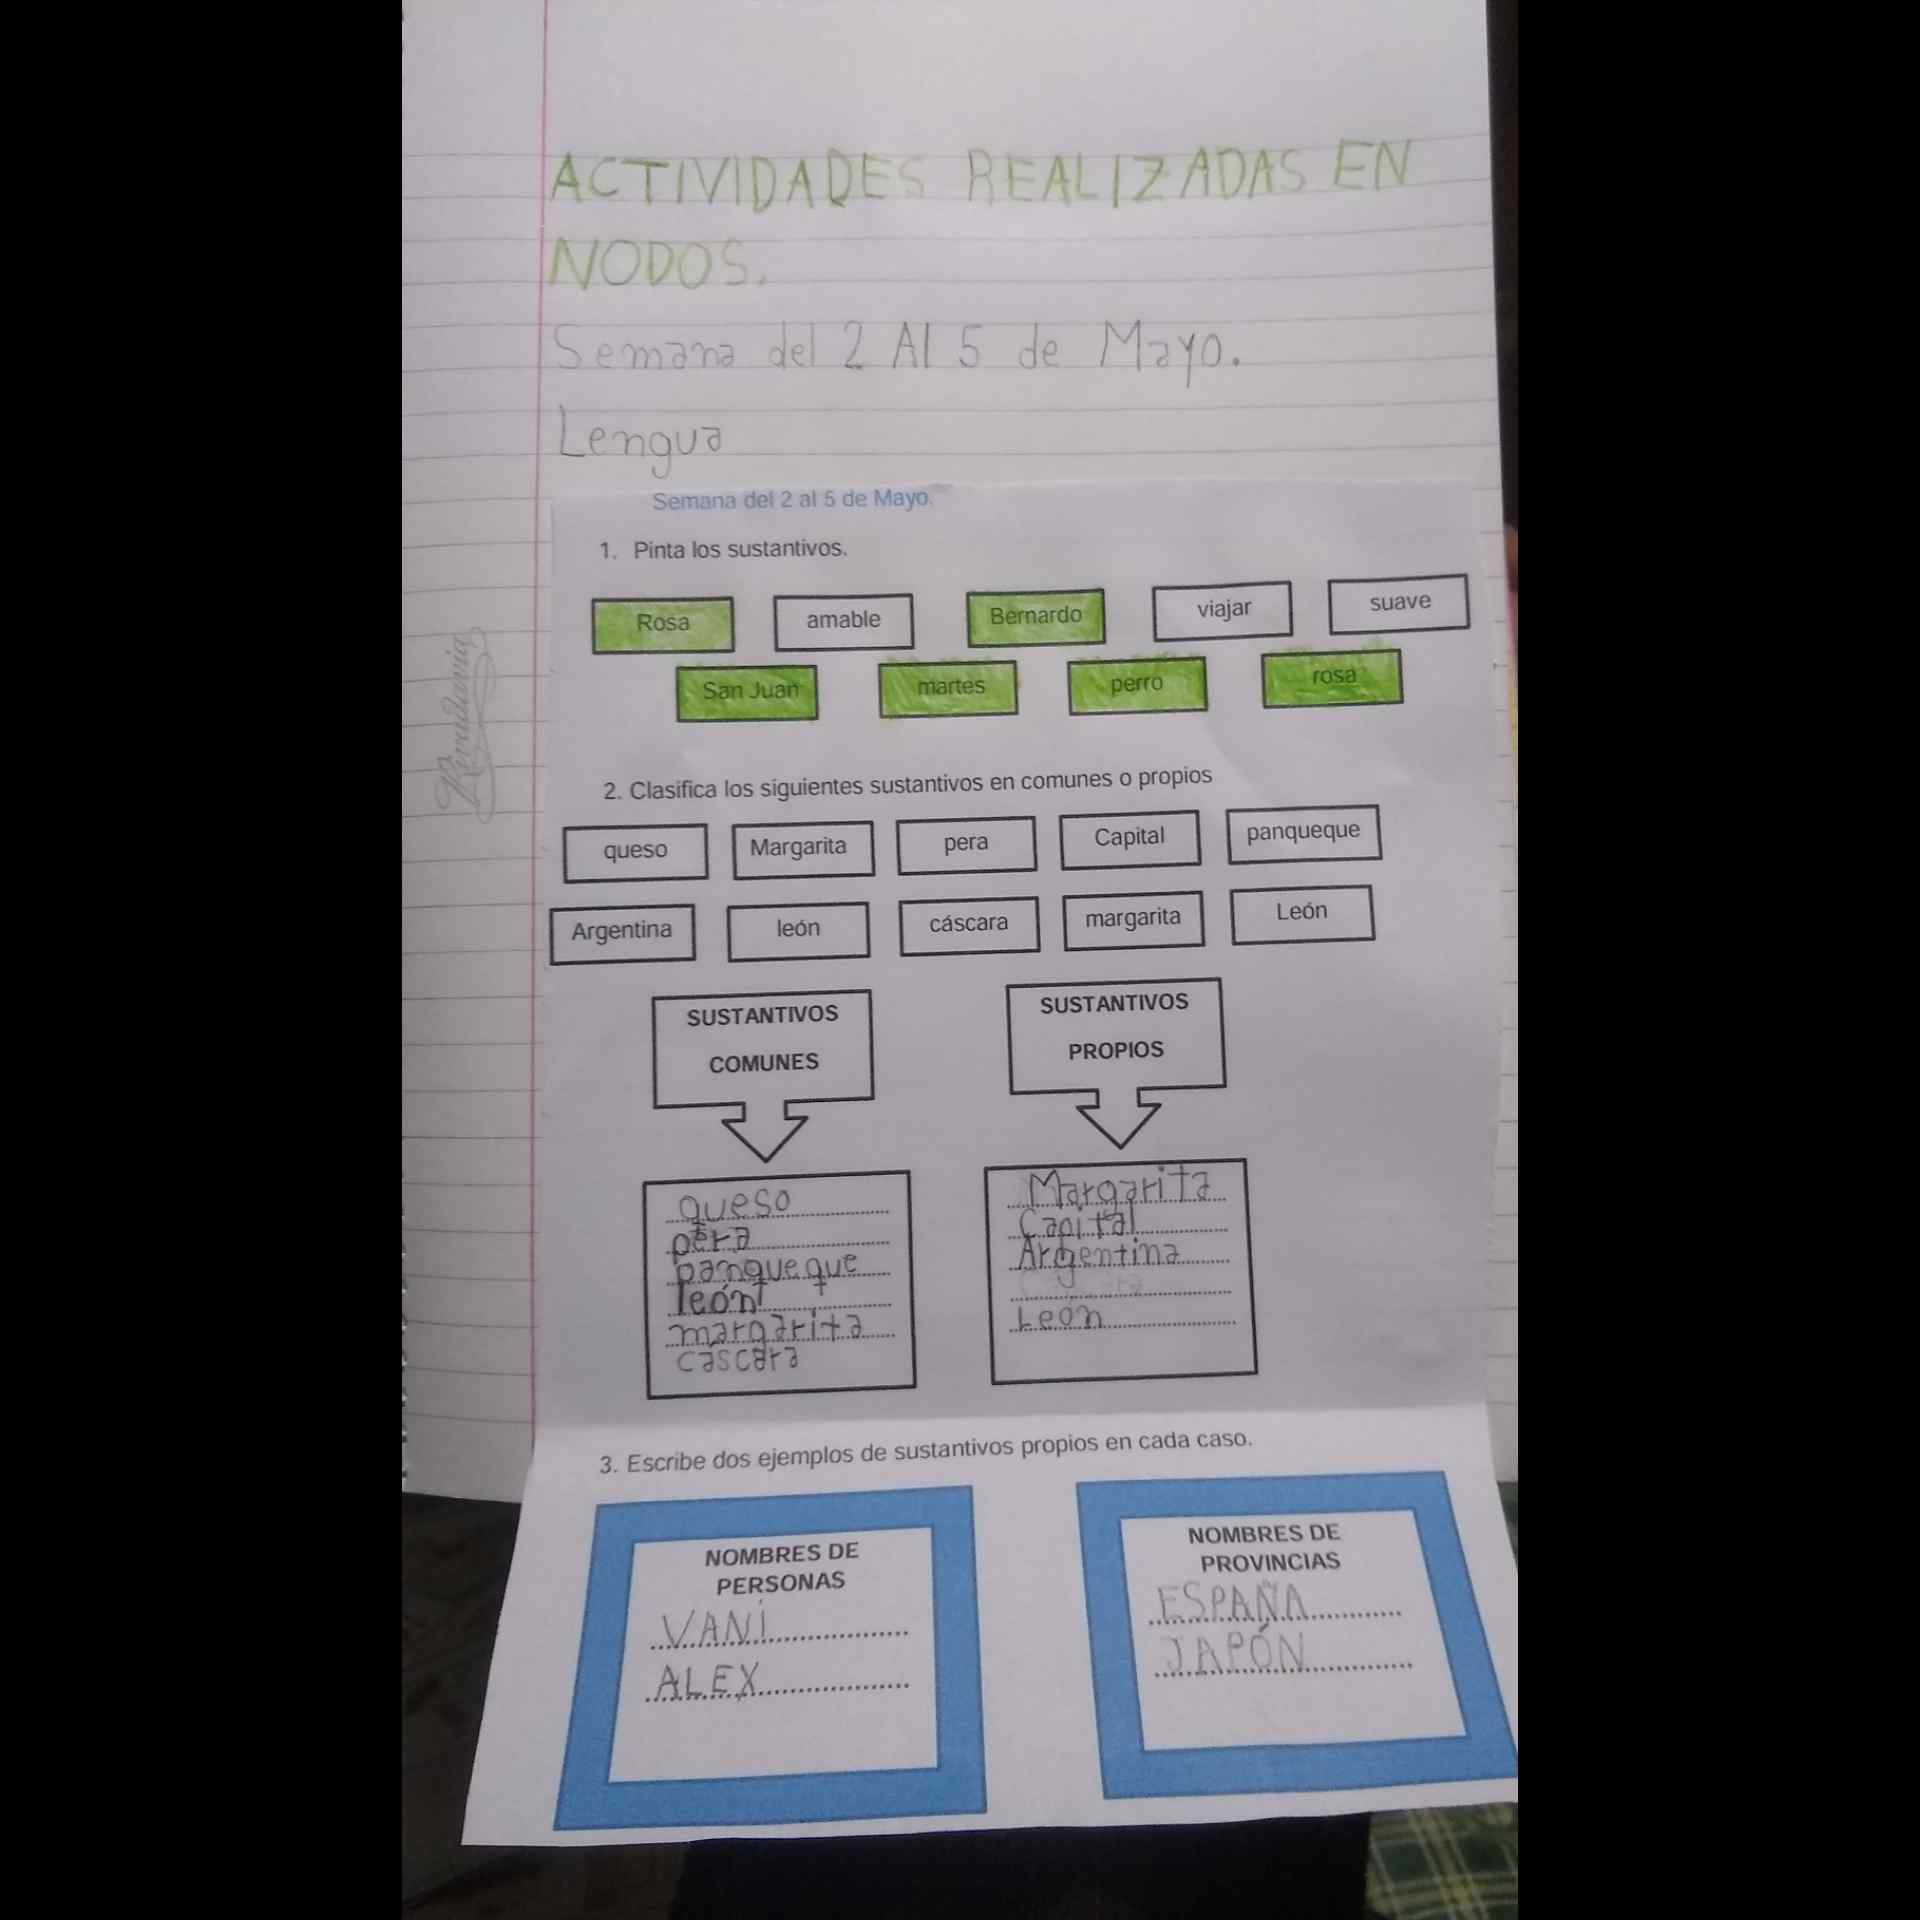 ACTIVIDADES REALIZADAS EN
NODOS.
Semana del 2 Al 5 de Mayo.
Lengua
Rivadavia
Semana del 2 al 5 de Mayo.
1. Pinta los sustantivos.
Rosa amable Bernardo viajar suave
San Juan martes perro rosa
2. Clasifica los siguientes sustantivos en comunes o propios
queso Margarita pera Capital panqueque
Argentina león cáscara margarita León
SUSTANTIVOS
COMUNES
SUSTANTIVOS
PROPIOS
queso
pera
panqueque
león
margarita
cáscara
Margarita
Capital
Argentina
León
3. Escribe dos ejemplos de sustantivos propios en cada caso.
NOMBRES DE
PERSONAS
VANi
ALEX
NOMBRES DE
PROVINCIAS
ESPAÑA
JAPÓN